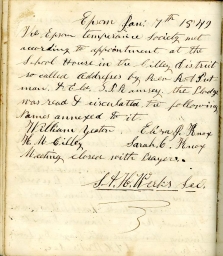 Epsom Jan. 7th 1849
The Epsom temperance Society met
according to appointment at the
School House in the Cilley district
so called Addresses by Rev
man. & Eld. Ramsey, the Pledge
was read & circulated the following
names annexed to it.
William Yeaton Eliza A. Knox
H. M. Cilley Sarah C. Knox
Meeting closed with Prayer.
S. A. H. Weeks Sec.